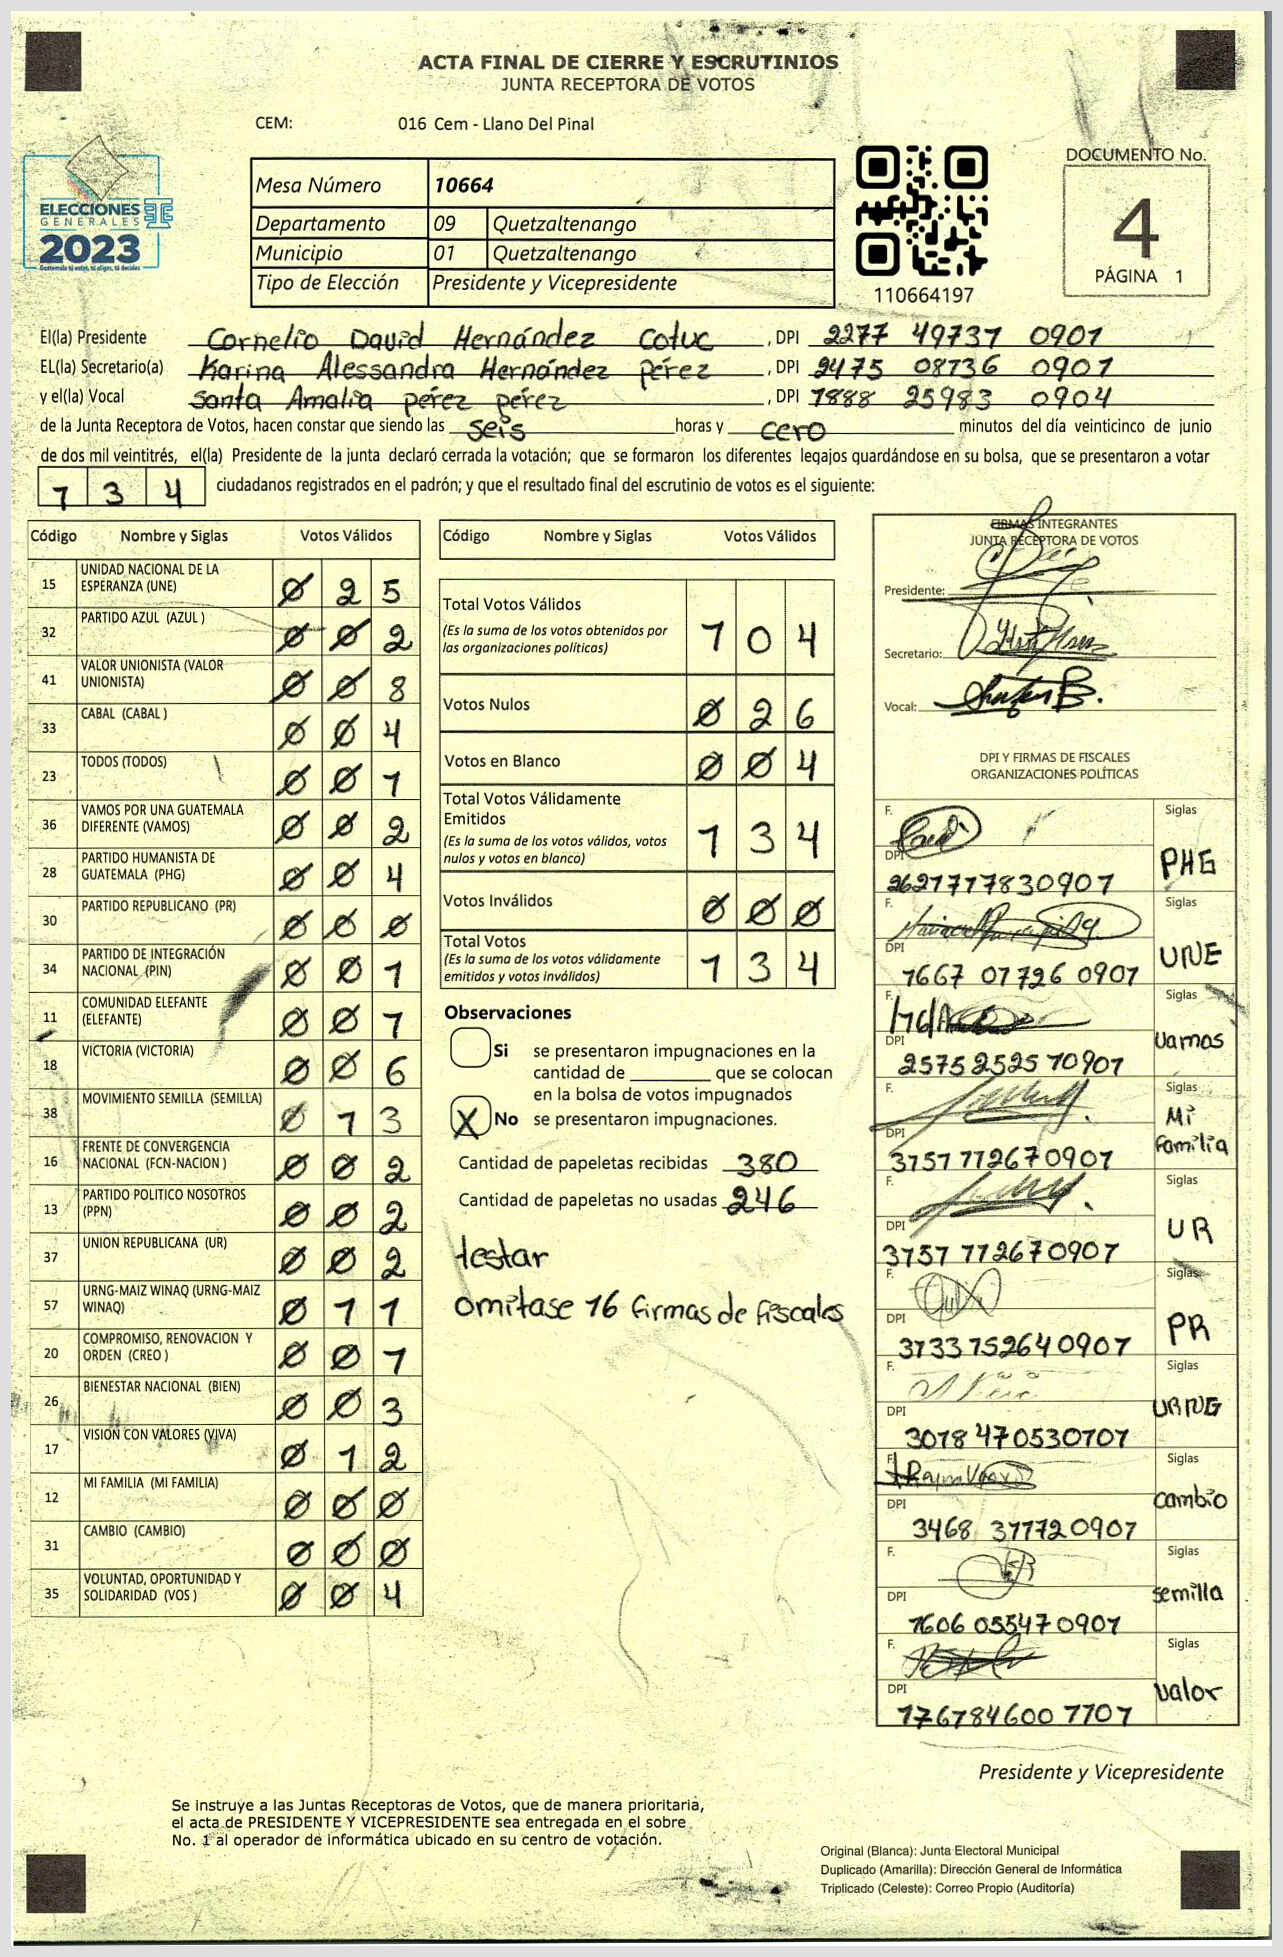 ACTA FINAL DE CIERRE Y ESCRUTINIOS
JUNTA RECEPTORA DE VOTOS
CEM: 016 Cem - Llano Del Pinal
ELECCIONES
GENERALES
2023
Guatemala tú votas, tú eliges, tú decides
Mesa Número 10664
Departamento 09 Quetzaltenango
Municipio 01 Quetzaltenango
Tipo de Elección Presidente y Vicepresidente
110664197
DOCUMENTO No.
4
PÁGINA 1
El(la) Presidente Cornelio David Hernández Cotuc, DPI 2277 49737 0901
EL(la) Secretario(a) Karina Alessandra Hernández pérez, DPI 2475 08736 0901
y el(la) Vocal Santa Amalia pérez pérez, DPI 1888 25983 0904
de la Junta Receptora de Votos, hacen constar que siendo las seis horas y cero minutos del día veinticinco de junio
de dos mil veintitrés, el(la) Presidente de la junta declaró cerrada la votación; que se formaron los diferentes legajos quardándose en su bolsa, que se presentaron a votar
134 ciudadanos registrados en el padrón; y que el resultado final del escrutinio de votos es el siguiente:
Código Nombre y Siglas Votos Válidos
15 UNIDAD NACIONAL DE LA ESPERANZA (UNE) 0 2 5
32 PARTIDO AZUL (AZUL ) 0 0 2
41 VALOR UNIONISTA (VALOR UNIONISTA) 0 0 8
33 CABAL (CABAL ) 0 0 4
23 TODOS (TODOS) 0 0 1
36 VAMOS POR UNA GUATEMALA DIFERENTE (VAMOS) 0 0 2
28 PARTIDO HUMANISTA DE GUATEMALA (PHG) 0 0 4
30 PARTIDO REPUBLICANO (PR) 0 0 0
34 PARTIDO DE INTEGRACIÓN NACIONAL (PIN) 0 0 1
11 COMUNIDAD ELEFANTE (ELEFANTE) 0 0 1
18 VICTORIA (VICTORIA) 0 0 6
38 MOVIMIENTO SEMILLA (SEMILLA) 0 1 3
16 FRENTE DE CONVERGENCIA NACIONAL (FCN-NACION ) 0 0 2
13 PARTIDO POLITICO NOSOTROS (PPN) 0 0 2
37 UNION REPUBLICANA (UR) 0 0 2
57 URNG-MAIZ WINAQ (URNG-MAIZ WINAQ) 0 1 1
20 COMPROMISO, RENOVACION Y ORDEN (CREO ) 0 0 1
26 BIENESTAR NACIONAL (BIEN) 0 0 3
17 VISION CON VALORES (VIVA) 0 1 2
12 MI FAMILIA (MI FAMILIA) 0 0 0
31 CAMBIO (CAMBIO) 0 0 0
35 VOLUNTAD, OPORTUNIDAD Y SOLIDARIDAD (VOS ) 0 0 4
Código Nombre y Siglas Votos Válidos
Total Votos Válidos 1 0 4
(Es la suma de los votos obtenidos por
las organizaciones políticas)
Votos Nulos 0 2 6
Votos en Blanco 0 0 4
Total Votos Válidamente
Emitidos 1 3 4
(Es la suma de los votos válidos, votos
nulos y votos en blanco)
Votos Inválidos 0 0 0
Total Votos 1 3 4
(Es la suma de los votos válidamente
emitidos y votos inválidos)
Observaciones
Si se presentaron impugnaciones en la
cantidad de ________ que se colocan
en la bolsa de votos impugnados
X No se presentaron impugnaciones.
Cantidad de papeletas recibidas 380
Cantidad de papeletas no usadas 246
testar
omitase 16 firmas de fiscales
FIRMAS INTEGRANTES
JUNTA RECEPTORA DE VOTOS
Presidente:
Secretario:
Vocal:
DPI Y FIRMAS DE FISCALES
ORGANIZACIONES POLÍTICAS
F. Siglas
DPI PHG
F. Siglas
DPI UNE
1667 01726 0901
F. Siglas
DPI Vamos
F. Siglas
DPI Mi familia
F. Siglas
DPI UR
F. Siglas
DPI PR
F. Siglas
DPI URNG
F. Siglas
DPI cambio
F. Siglas
DPI semilla
1606 05547 0901
F. Siglas
DPI valor
Presidente y Vicepresidente
Se instruye a las Juntas Receptoras de Votos, que de manera prioritaria,
el acta de PRESIDENTE Y VICEPRESIDENTE sea entregada en el sobre
No. 1 al operador de informática ubicado en su centro de votación.
Original (Blanca): Junta Electoral Municipal
Duplicado (Amarilla): Dirección General de Informática
Triplicado (Celeste): Correo Propio (Auditoría)